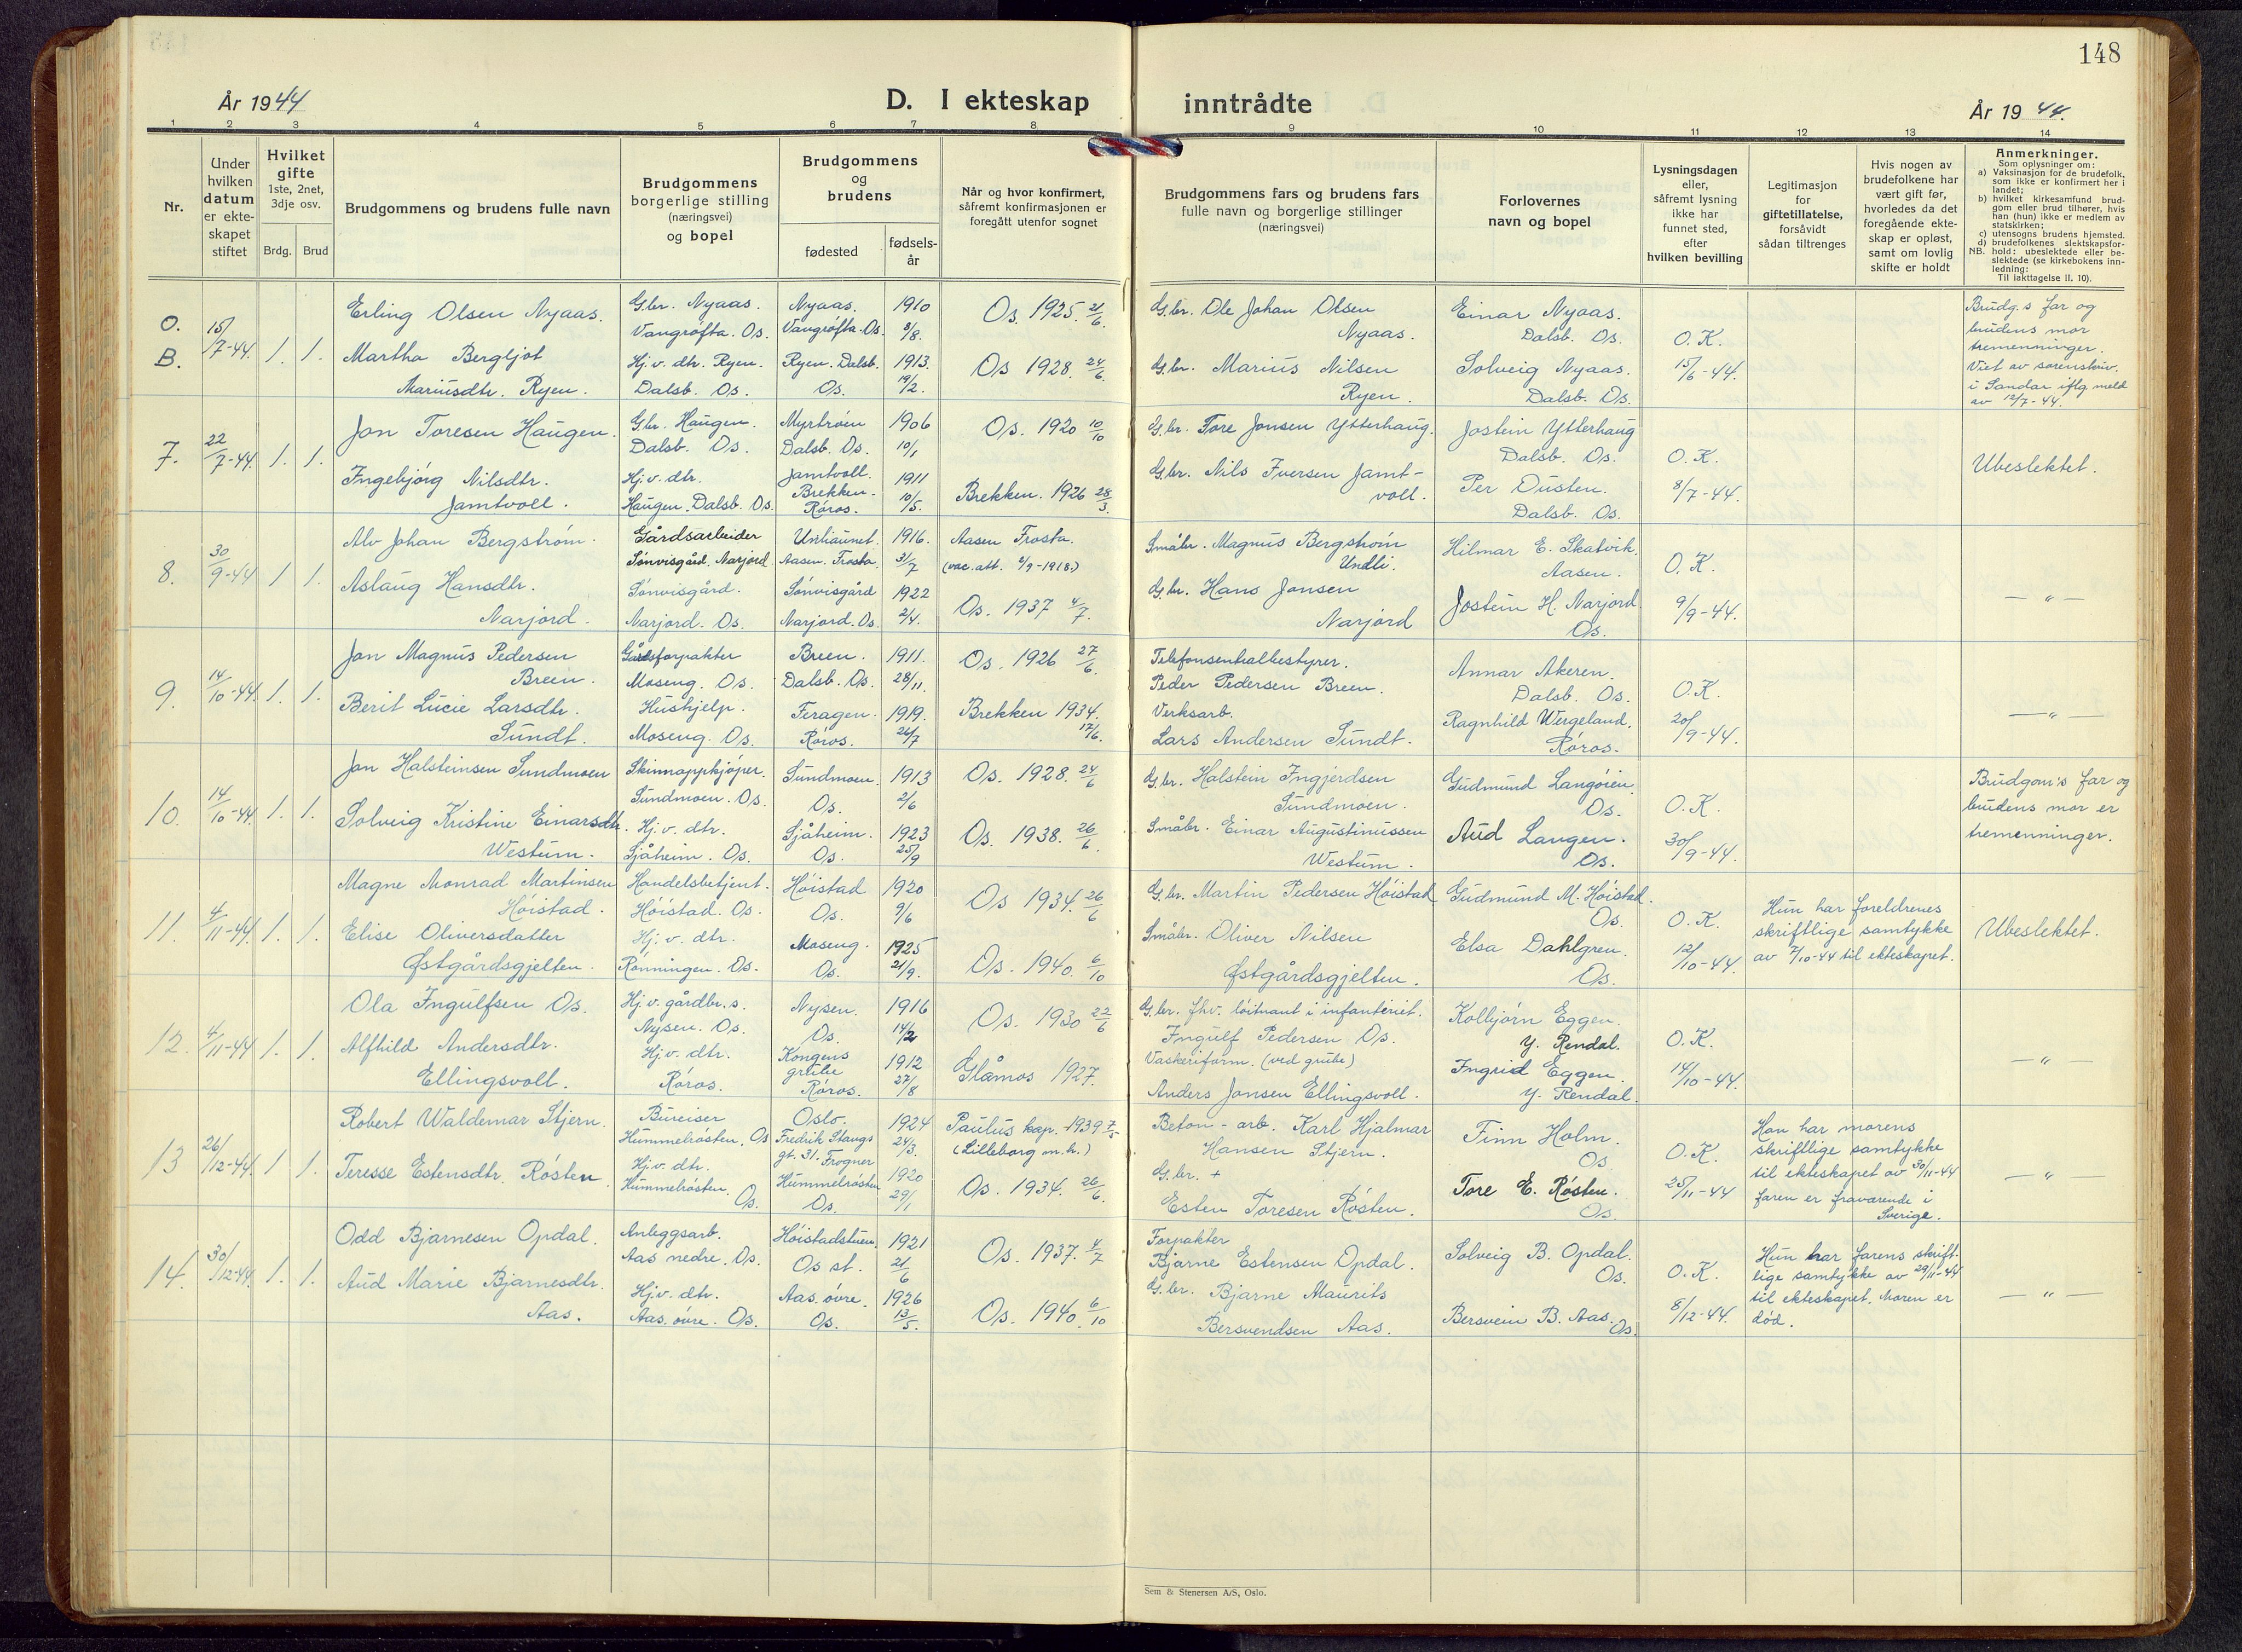 148
År 1944
D. I ekteskap
inntrådte
År 1944.
1 2 3 4 5 6 7 8 9 10 11 12 13 14
Nr.
Under
hvilken
datum
er ekte-
skapet
stiftet
Hvilket
gifte
1ste, 2net,
3dje osv.
Brdg.
Brud
Brudgommens og brudens fulle navn
Brudgommens
borgerlige stilling
(næringsvei)
og bopel
Brudgommens
og
brudens
fødested
fødsels-
år
Når og hvor konfirmert,
såfremt konfirmasjonen er
foregått utenfor sognet
Brudgommens fars og brudens fars
fulle navn og borgerlige stillinger
(næringsvei)
Forlovernes
navn og bopel
Lysningsdagen
eller,
såfremt lysning
ikke har
funnet sted,
efter
hvilken bevilling
Legitimasjon
for
giftetillatelse,
forsåvidt
sådan tiltrenges
Hvis nogen av
brudefolkene har
vært gift før,
hvorledes da det
foregående ekte-
skap er opløst,
samt om lovlig
skifte er holdt
Anmerkninger.
Som oplysninger om:
a) Vaksinasjon for de brudefolk,
som ikke er konfirmert her i
landet;
b) hvilket kirkesamfund brud-
gom eller brud tilhører, hvis
han (hun) ikke er medlem av
statskirken;
c) utensogns brudens hjemsted.
d) brudefolkenes slektskapsfor-
NB. hold: ubeslektede eller be-
slektede (se kirkebokens inn-
ledning:
Til iakttagelse II. 10).
O.
B.
15/7-44.
1. 1.
Erling Olsen Nyaas.
Martha Bergljot
Mariusdtr. Ryen.
G.br. Nyaas.
Vangrøfta. Os.
Hj.v. dtr. Ryen.
Dalsb. Os.
Nyaas.
Vangrøfta. Os.
Ryen. Dalsb.
Os.
1910
8/8.
1913.
19/2.
Os. 1925. 21/6.
Os 1928. 24/6.
G.br. Ole Johan Olsen
Nyaas.
G.br. Marius Nilsen
Ryen.
Einar Nyaas.
Dalsb. Os.
Solveig Nyaas.
Dalsb. Os.
O.K.
15/6-44.
Brudg.s far og
brudens mor
tremenninger.
Viet av sorenskriv.
i Sandar iflg meld
av 12/7-44.
7.
22/7-44.
1. 1.
Jon Toresen Haugen.
Ingebjørg Nilsdtr.
Jamtvoll.
G.br. Haugen.
Dalsb. Os.
Hj.v. dtr.
Haugen. Dalsb. Os.
Myrtrøen
Dalsb. Os.
Jamtvoll.
Brekken.
Røros.
1906
10/1
1911
10/5.
Os. 1920 10/10
Brekken. 1926 28/3.
G.br. Tore Jonsen Ytterhaug.
G.br. Nils Iversen Jamt-
voll.
Jostein Ytterhaug
Dalsb. Os.
Per Dusten.
Dalsb. Os.
O.K.
8/7-44.
Ubeslektet.
8.
30/9-44
1 1.
Alv Johan Bergstrøm.
Aslaug Hansdtr.
Narjord.
Gårdsarbeider
Sønvisgård. Narjord.
Sønvisgård.
Narjord. Os.
Aasen. Frosta
Sønvisgård
Narjord. Os.
1916.
31/7
1922
2/4.
Aasen Frosta.
(vac. att. 2/9-1918.)
Os. 1937 4/7.
Småbr. Magnus Bergstrøm
Undli.
G.br. Hans Jonsen
Narjord
Hilmar E. Skatvik.
Aasen.
Jostein H. Narjord.
Os.
O.K.
9/9-44.
— " —
9.
14/10-44.
1. 1.
Jon Magnus Pedersen
Breen.
Berit Lucie Larsdtr.
Sundt.
Gårdsforpakter
Moseng. Os.
Hushjelp.
Moseng. Os.
Breen.
Dalsb. Os.
Feragen.
Røros.
1911.
28/11.
1919.
26/7
Os. 1926 27/6.
Brekken 1934.
17/6.
Telefonsentralbestyrer.
Peder Pedersen Breen.
Verksarb.
Lars Andersen Sundt.
Annar Akeren.
Dalsb. Os.
Ragnhild Wergeland.
Røros.
O.K.
20/9-44.
— " —
10.
14/10-44.
1. 1.
Jon Halsteinsen Sundmoen
Solveig Kristine Einarsdtr.
Westum.
Skinnoppkjøper.
Sundmoen. Os.
Hj.v. dtr.
Sjåheim. Os.
Sundmoen.
Os.
Sjåheim.
Os.
1913
2/6
1923
25/9
Os. 1928. 24/6
Os. 1938. 26/6
G.br. Halstein Ingjerdsen
Sundmoen.
Småbr. Einar Augustinussen
Westum.
Gudmund Langøien.
Os.
Aud Langen.
Os.
O.K.
30/9-44.
Brudgom's far og
brudens mor er
tremenninger.
11.
4/11-44.
1. 1.
Magne Monrad Martinsen
Høistad.
Elise Oliversdatter
Østgårdsgjelten.
Handelsbetjent.
Høistad. Os.
Hj.v. dtr.
Rønningen. Os.
Høistad
Os.
Moseng.
Os.
1920
9/6
1925
21/9.
Os 1934. 26/6
Os. 1940. 6/10
G.br. Martin Pedersen Høistad
Småbr. Oliver Nilsen
Østgårdsgjelten.
Gudmund M. Høistad.
Os.
Elsa Dahlgren.
Os.
O.K.
12/10-44.
Hun har foreldrenes
skriftlige samtykke
av 7/10-44 til ekteskapet.
Ubeslektet.
12.
4/11-44
1. 1.
Ola Ingulfsen Os.
Alfhild Andersdtr.
Ellingsvoll.
Hj.v. gårdbr.s.
Nysen. Os.
Hj.v. dtr.
Røros.
Nysen.
Os.
Kongens
grube
Røros.
1916
14/2
1912
27/8
Os. 1930 22/6
Glåmos 1927.
G.br. fhv. løitnant i infanteriet.
Ingulf Pedersen Os.
Vaskeriform. (ved grube)
Anders Jonsen Ellingsvoll.
Kolbjørn Eggen.
Y. Rendal.
Ingrid Eggen.
Y. Rendal.
O.K.
14/10-44.
— " —
13
26/12-44.
1 1.
Robert Waldemar Stjern.
Teresse Estensdtr. Røsten.
Bureiser
Hummelrøsten. Os
Hj.v. dtr.
Hummelrøsten.
Os.
Oslo.
Fredrik Stangs
gt. 31. Frogner
Hummelrøsten
Os.
1924
24/3.
1920
29/1
Paulus kap. 1939 7/5
(Lilleborg m.h.)
Os. 1934. 26/6.
Beton-arb. Karl Hjalmar
Hansen Stjern.
G.br. +
Esten Toresen Røsten.
Finn Holm.
Os
Tore E. Røsten.
Os.
O.K.
25/11-44
Han har morens
skriftlige samtykke
til ekteskapet av 30/11-44
faren er fraværende i
Sverige.
— " —
14.
30/12-44.
1. 1.
Odd Bjarnesen Opdal.
Aud Marie Bjarnesdtr.
Aas.
Anleggsarb.
Aas nedre. Os.
Hj.v. dtr.
Aas. øvre. Os.
Høistadstuen.
Os st.
Aas. øvre.
Os.
1921
21/6
1926
13/5.
Os. 1937. 4/7
Os. 1940. 6/10
Forpakter
Bjarne Estensen Opdal.
G.br. Bjarne Maurits
Bersvendsen Aas.
Solveig B. Opdal.
Os.
Bersvein B. Aas.
Os.
O.K.
8/12-44.
Hun har farens skrift-
lige samtykke av 29/11-44
til ekteskapet. Moren er
død.
— " —
Sem & Stenersen A/S, Oslo.